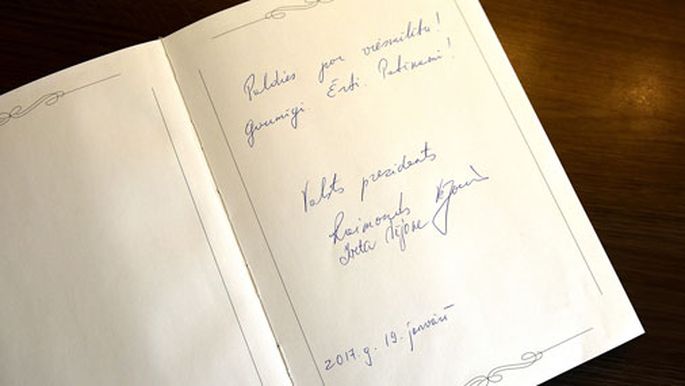 Paldies par viesmīlību!
Gaumīgi. Ērti. Patīkami!
Valsts prezidents
Raimonds Vējonis
Iveta Vējone
2017.g. 19. janvārī